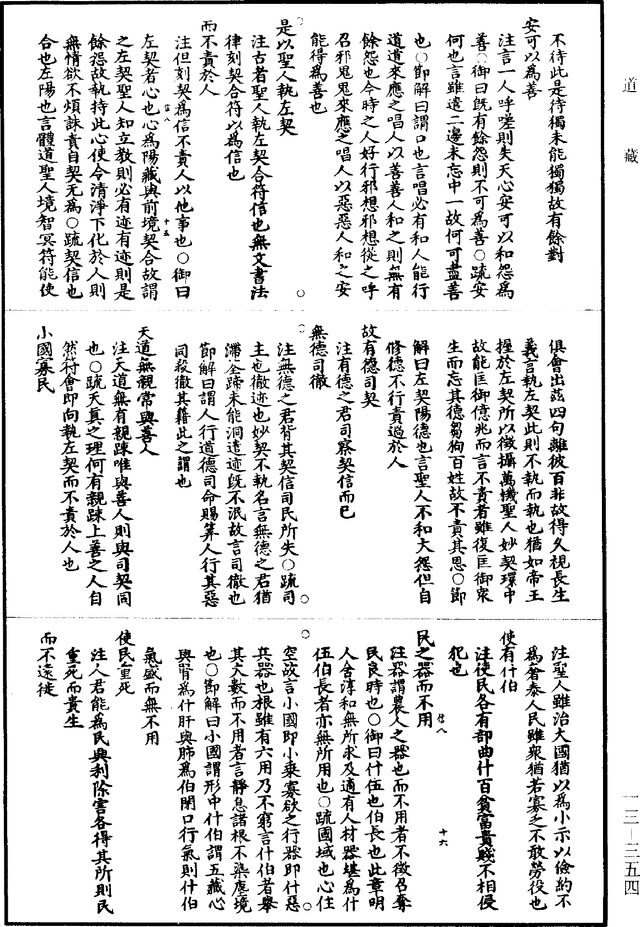 道藏
不待此是待獨未能獨獨故有餘對
安可以為善
注言一人呼嗟則失天心安可以和怨為
善○御曰既有餘怨則不可為善○疏安
何也言雖遣二邊未忘中一故何可盡善
也○節解曰謂口也言唱必有和人能行
道道來應之唱人以善善人和之則無有
餘怨也今時之人好行邪想邪想從之呼
召邪鬼鬼來應之唱人以惡惡人和之安
能得為善也
是以聖人執左契
注古者聖人執左契合符信也無文書法
律刻契合符以為信也
而不責於人
注但刻契為信不責人以他事也○御曰
左契者心也心為陽藏與前境契合故謂
之左契聖人知立教則必有迹有迹則是
餘怨故執持此心使令清淨下化於人則
無情欲不煩誅責自契無為○疏契信也
合也左陽也言體道聖人境智冥符能使
俱會出茲四句離彼百非故得久視長生
義言執左契此則不執而執也猶如帝王
握於左契所以徵攝萬機聖人妙契環中
故能匡御億兆而言不責者雖復匡御眾
生而忘其德芻狗百姓故不責其恩○節
解曰左契陽德也言聖人不和大怨但自
修德不行責過於人
故有德司契
注有德之君司察契信而已
無德司徹
注無德之君背其契信司民所失○疏司
主也徹迹也妙契不執名言無德之君猶
滯筌蹄未能洞遣迹既不泯故言司徹也
節解曰謂人行道德司命賜筭人行其惡
同殺徹其藉此之謂也
天道無親常與善人
注天道無有親踈唯與善人則與司契同
也○疏天真之理何有親踈上善之人自
然符會即向執左契而不責於人也
小國寡民
注聖人雖治大國猶以為小示以儉約不
為奢泰人民雖眾猶若寡乏不敢勞役也
使有什伯
注使民各有部曲什百貧富貴賤不相侵
犯也
民之器而不用
注器謂農人之器也而不用者不徵召奪
民良時也○御曰什伍也伯長也此章明
人含淳和無所求及適有人材器堪為什
伍伯長者亦無所用也○疏國域也心住
空故言小國即小乘寡欲之行器即什惡
兵器也根雖有六用乃不窮言什伯者舉
其大數而不用者言靜息諸根不染塵境
也○節解曰小國謂形中什伯謂五藏心
與腎為什肝與肺為伯閉口行氣則什伯
氣盛而無不用
使民重死
注人君能為民興利除害各得其所則民
重死而貴生
而不遠徙
一三─三五四